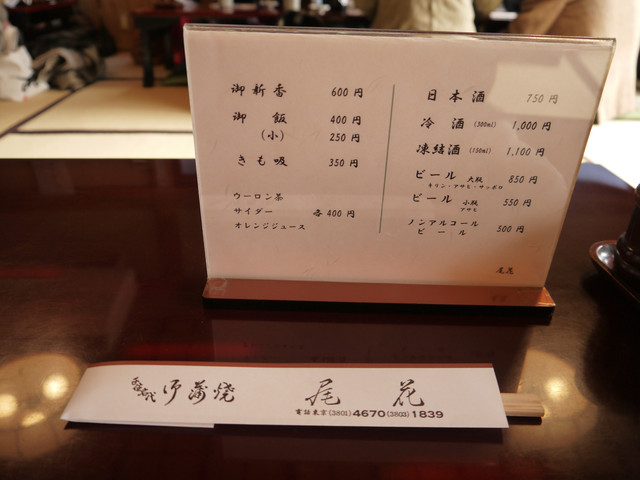 御新香 600円
御飯 400円
(小) 250円
きも吸 350円
ウーロン茶
サイダー 各400円
オレンジジュース
日本酒 750円
冷酒 (300ml) 1,000円
凍結酒 (150ml) 1,100円
ビール 大瓶 850円
キリン・アサヒ・サッポロ
ビール 小瓶 550円
アサヒ
ノンアルコール
ビール 500円
尾花
御蒲焼 尾花
電話東京(3801)4670(3803)1839